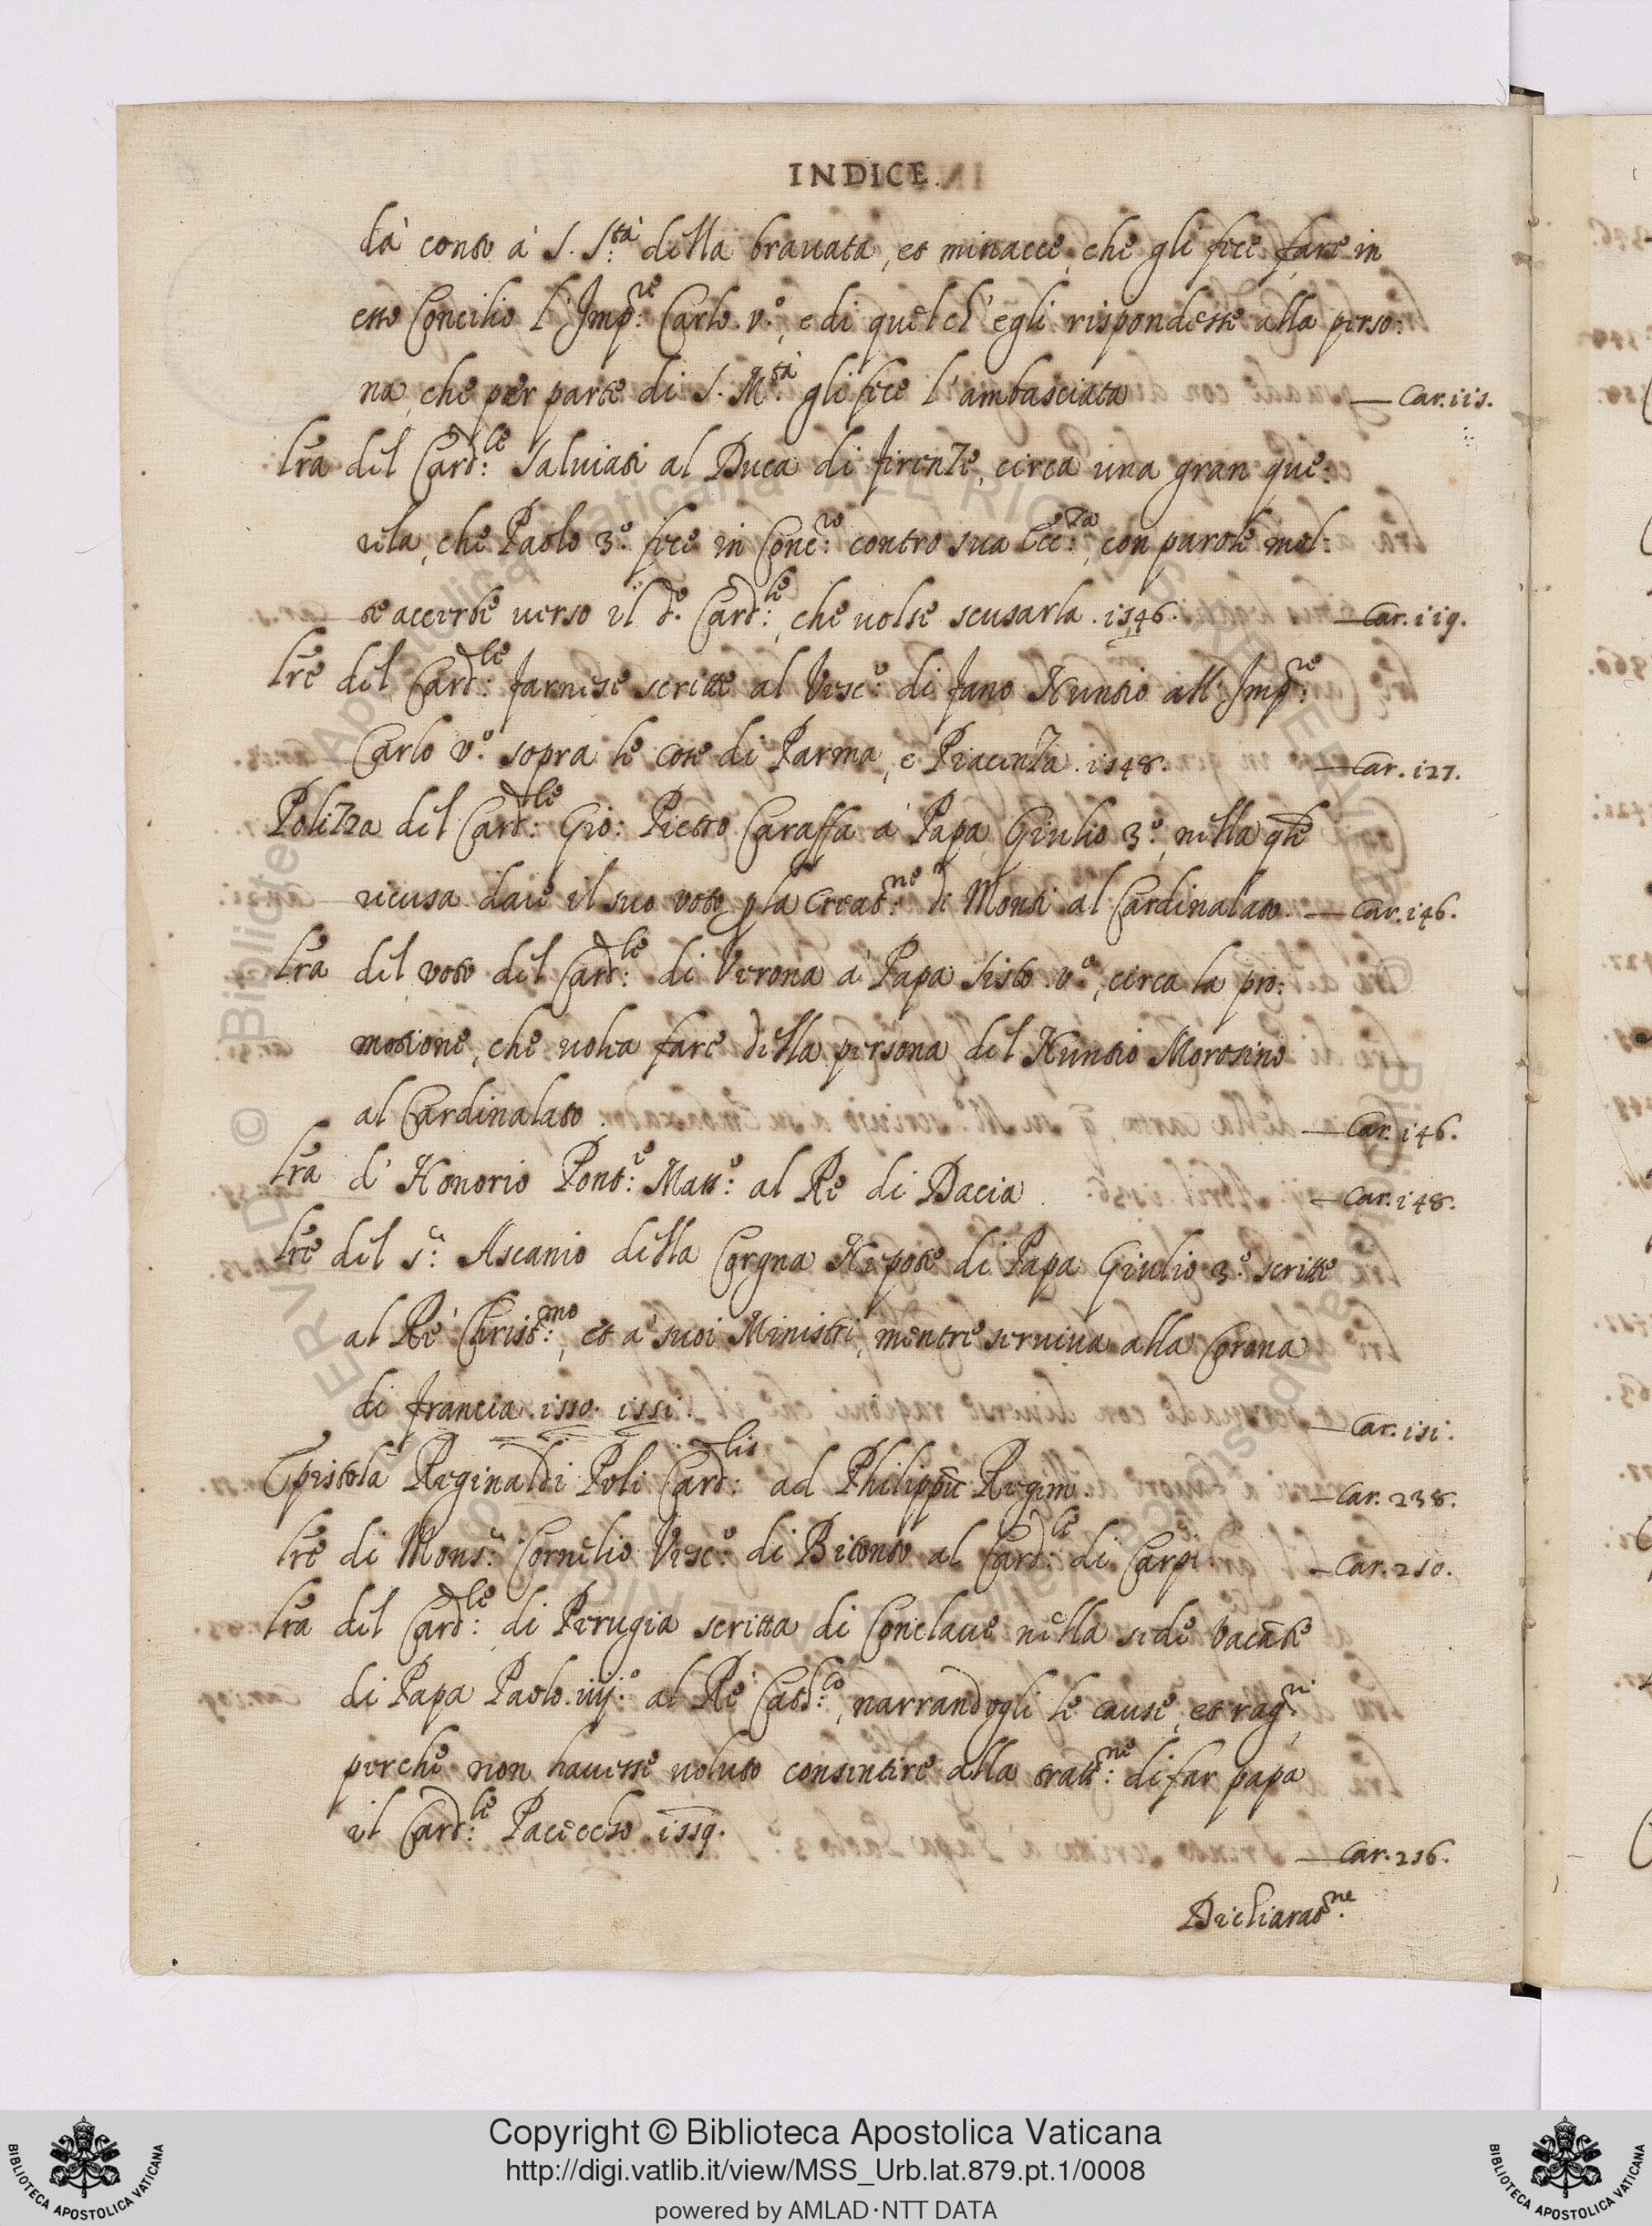 INDICE.
dà conto à S. S.tà della brauata, et minacce, che gli fece fare in
esso Concilio l'Imp.re Carlo .v.º, e di quel ch'egli rispondesse alla perso:
na, che per parte di S. M.tà gli fece l'ambasciata — Car. 115.
Lra del Card.le Saluiati al Duca di firenze, circa una gran que:
rela, che Paolo 3.º fece in Conc.ro contro sua Ecc.za, con parole mol:
te accerbe uerso il d.º Card.le, che uolse scusarla . 1546. — Car. 119.
Lre del Card.le Farnese scritte al Vesc.º di Fano Nuntio all'Imp.re
Carlo v.º sopra le cose di Parma, e Piacenza . 1548. — Car. 127.
Polizza del Card.le Gio: Pietro Caraffa à Papa Giulio 3.º, nella qle
ricusa dare il suo voto p la creat.ne di Monti al Cardinalato. — Car. 146.
Lra del voto del Card.le di Verona à Papa Sisto .v.º, circa la pro:
motione, che uolea fare della persona del Nuntio Morosino
al Cardinalato . — Car. 146.
Lra d'Honorio Pont.e Mass.º al Re di Dacia . — Car. 148.
Lre del S.r Ascanio della Corgna Nepote di Papa Giulio 3.º scritte
al Rè Christ.mo, et a suoi Ministri, mentre seruiua alla Corona
di Francia . 1550. 1551. — Car. 151.
Epistola Reginaldi Poli Card.lis ad Philippũ Regem — Car. 238.
Lre di Mons.r Cornelio Vesc.º di Bitonto al Card.le di Carpi — Car. 250.
Lra del Card.le di Perugia scritta di Conclaue nella sede Vacãte
di Papa Paolo .iiij.º al Rè Catt.co, narrandogli le cause, et rag.ni
perche non hauesse uoluto consentire alla tratt.ne di far papa
il Card.le Paceccho . 1559. — Car. 256.
Dechiarat.ne
© Biblioteca Apostolica Vaticana ALL RIGHTS RESERVED
Copyright © Biblioteca Apostolica Vaticana
http://digi.vatlib.it/view/MSS_Urb.lat.879.pt.1/0008
powered by AMLAD·NTT DATA
BIBLIOTECA APOSTOLICA VATICANA
BIBLIOTECA APOSTOLICA VATICANA